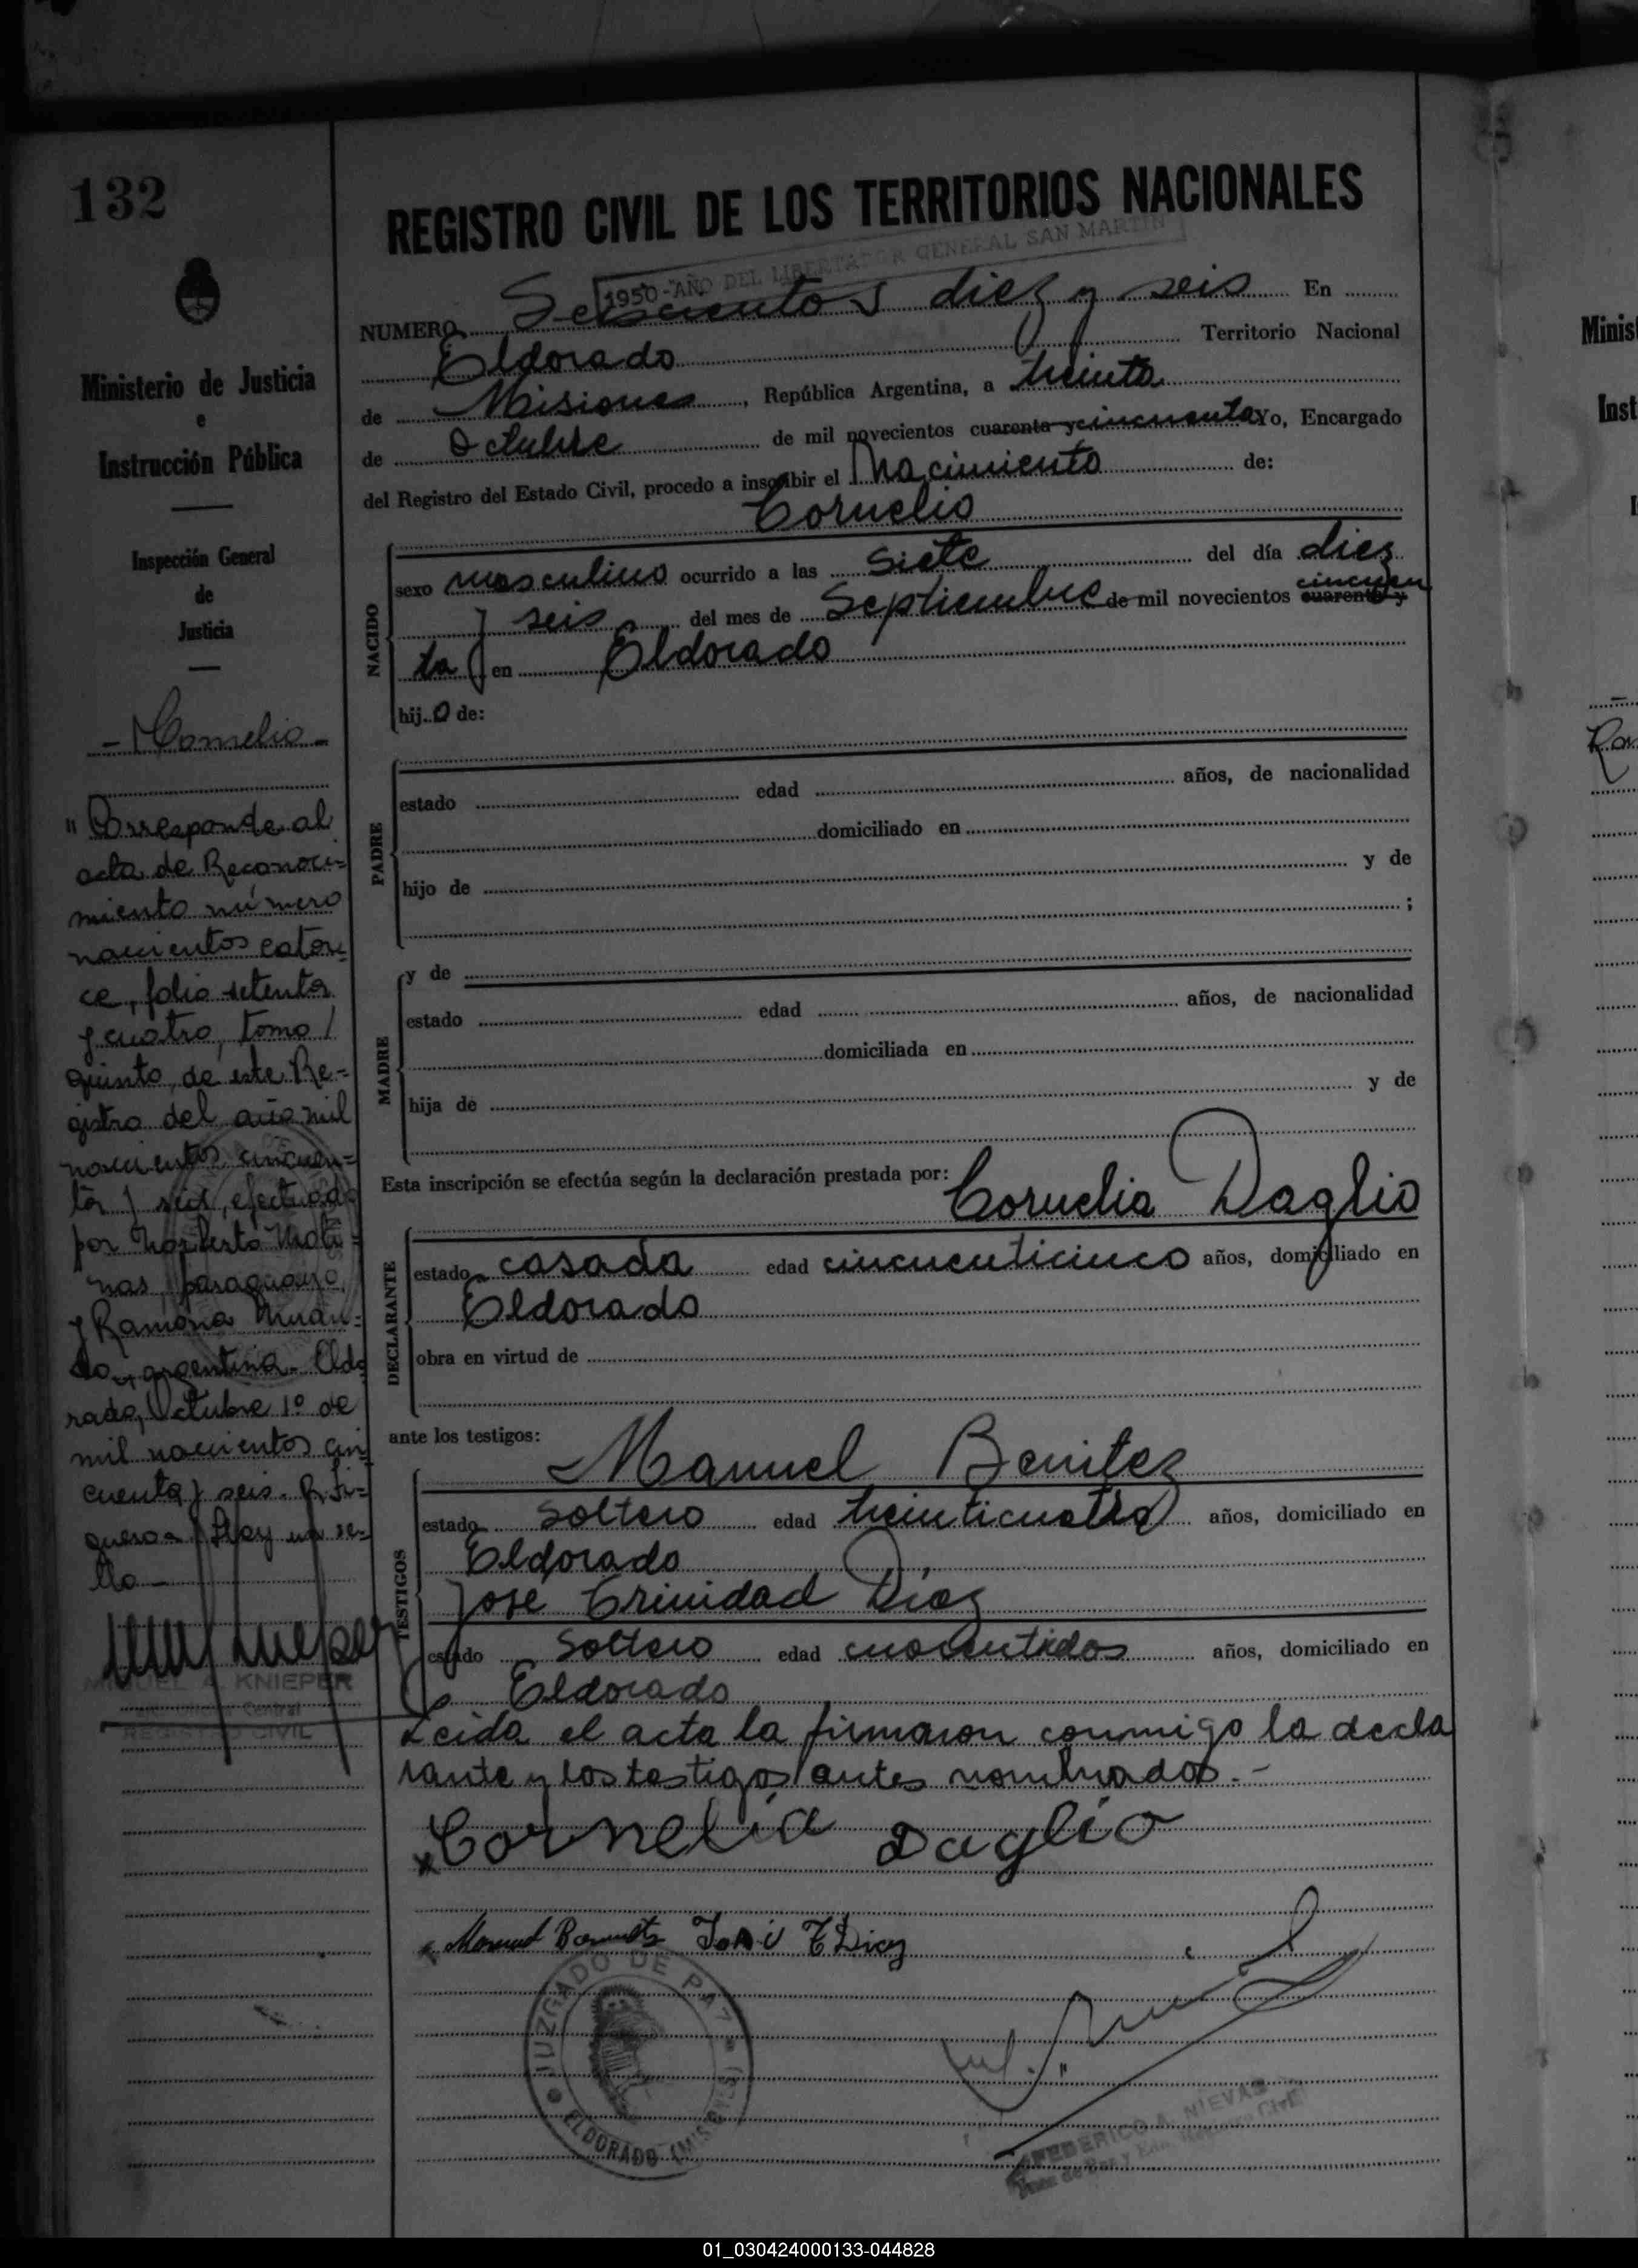 132
REGISTRO CIVIL DE LOS TERRITORIOS NACIONALES
1950 - AÑO DEL LIBERTADOR GENERAL SAN MARTIN
NUMERO Seiscientos diez y seis En
Eldorado Territorio Nacional
de Misiones, República Argentina, a treinta
de Octubre de mil novecientos cuarenta y cincuenta Yo, Encargado
del Registro del Estado Civil, procedo a inscribir el Nacimiento de:
Cornelio
NACIDO
sexo masculino ocurrido a las siete del día diez
y seis del mes de Septiembre de mil novecientos cuarenta y cincuen
ta en Eldorado
hijo de:
PADRE
estado edad años, de nacionalidad
domiciliado en
hijo de y de
;
MADRE
y de
estado edad años, de nacionalidad
domiciliada en
hija de y de
Esta inscripción se efectúa según la declaración prestada por:
Cornelia Daglio
DECLARANTE
estado casada edad cincuenticinco años, domiciliado en
Eldorado
obra en virtud de
ante los testigos:
Manuel Benitez
TESTIGOS
estado soltero edad treinticuatro años, domiciliado en
Eldorado
Jose Trinidad Díaz
estado soltero edad cuarentidos años, domiciliado en
Eldorado
Leida el acta la firmaron conmigo la decla
rante y los testigos antes nombrados.-
Cornelia Daglio
Manuel Benitez José T Diaz
JUZGADO DE PAZ
ELDORADO (MISIONES)
FEDERICO A. NIEVAS
Juez de Paz y Enc. Registro Civil
Ministerio de Justicia
e
Instrucción Pública
Inspección General
de
Justicia
- Cornelio -
"Corresponde al
acta de Reconoci-
miento número
novecientos cator-
ce, folio setenta
y cuatro, tomo
quinto, de este Re-
gistro del año mil
novecientos cincuen-
ta y seis, efectuado
por Norberto
nas, paraguayo,
y Ramona
do, argentina. Eldo
rado, Octubre 1º de
mil novecientos cin
cuenta y seis.
Hay un se-
llo -
MIGUEL A. KNIEPER
Central
REGISTRO CIVIL
Minis
Inst
01_030424000133-044828